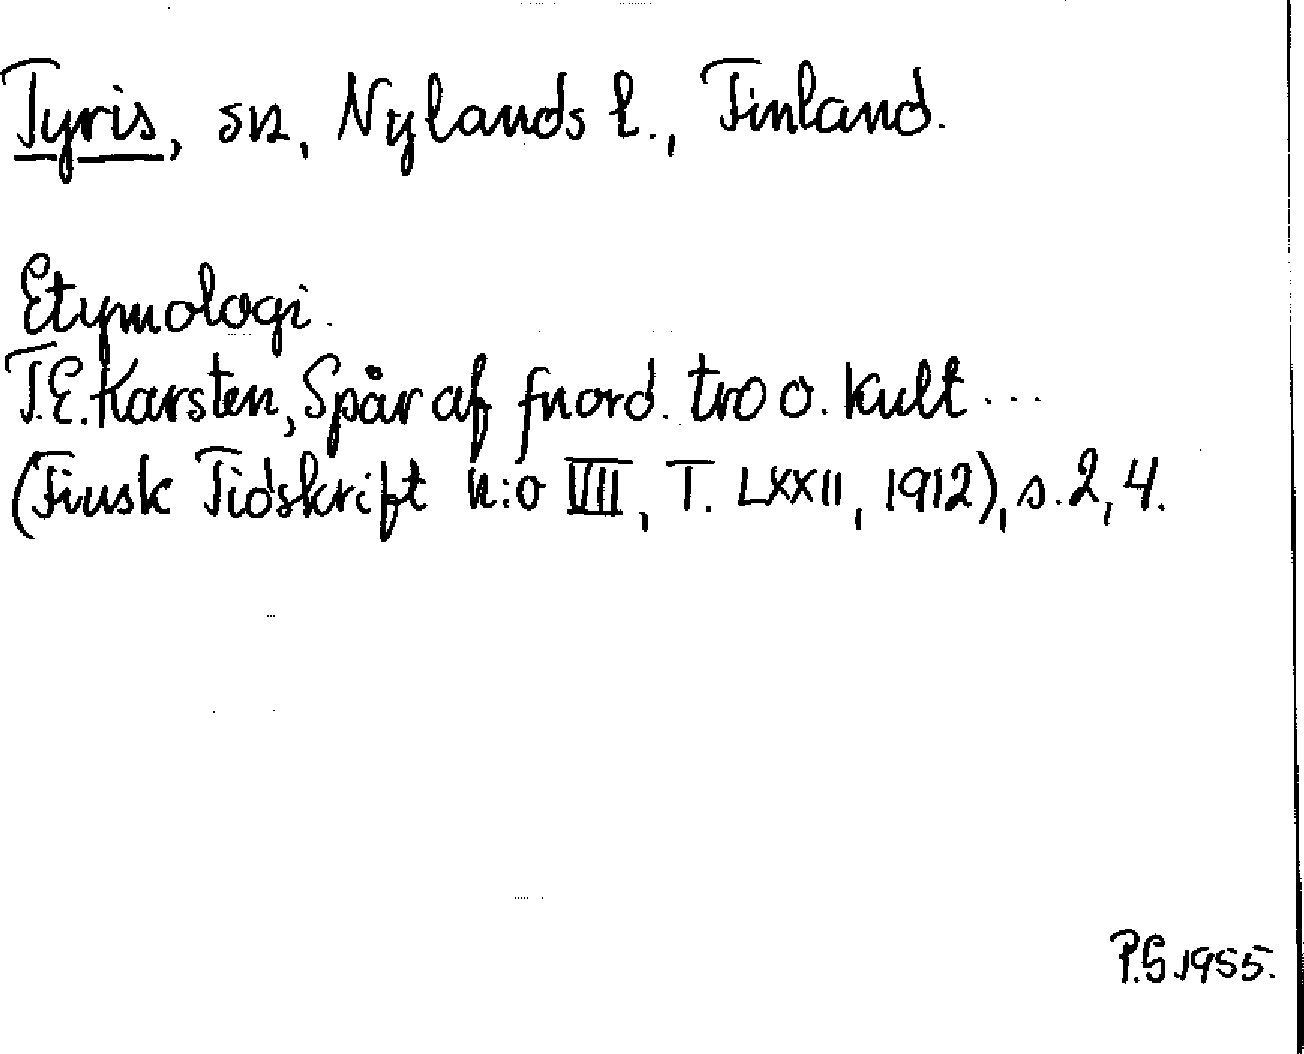 Tyris, sn, Nylands l., Finland.
Etymologi.
T.E. Karsten, Spår af fnord. tro o. kult ...
(Finsk Tidskrift n:o VIII, T. LXXII, 1912), s. 2, 4.
P.S 1955.